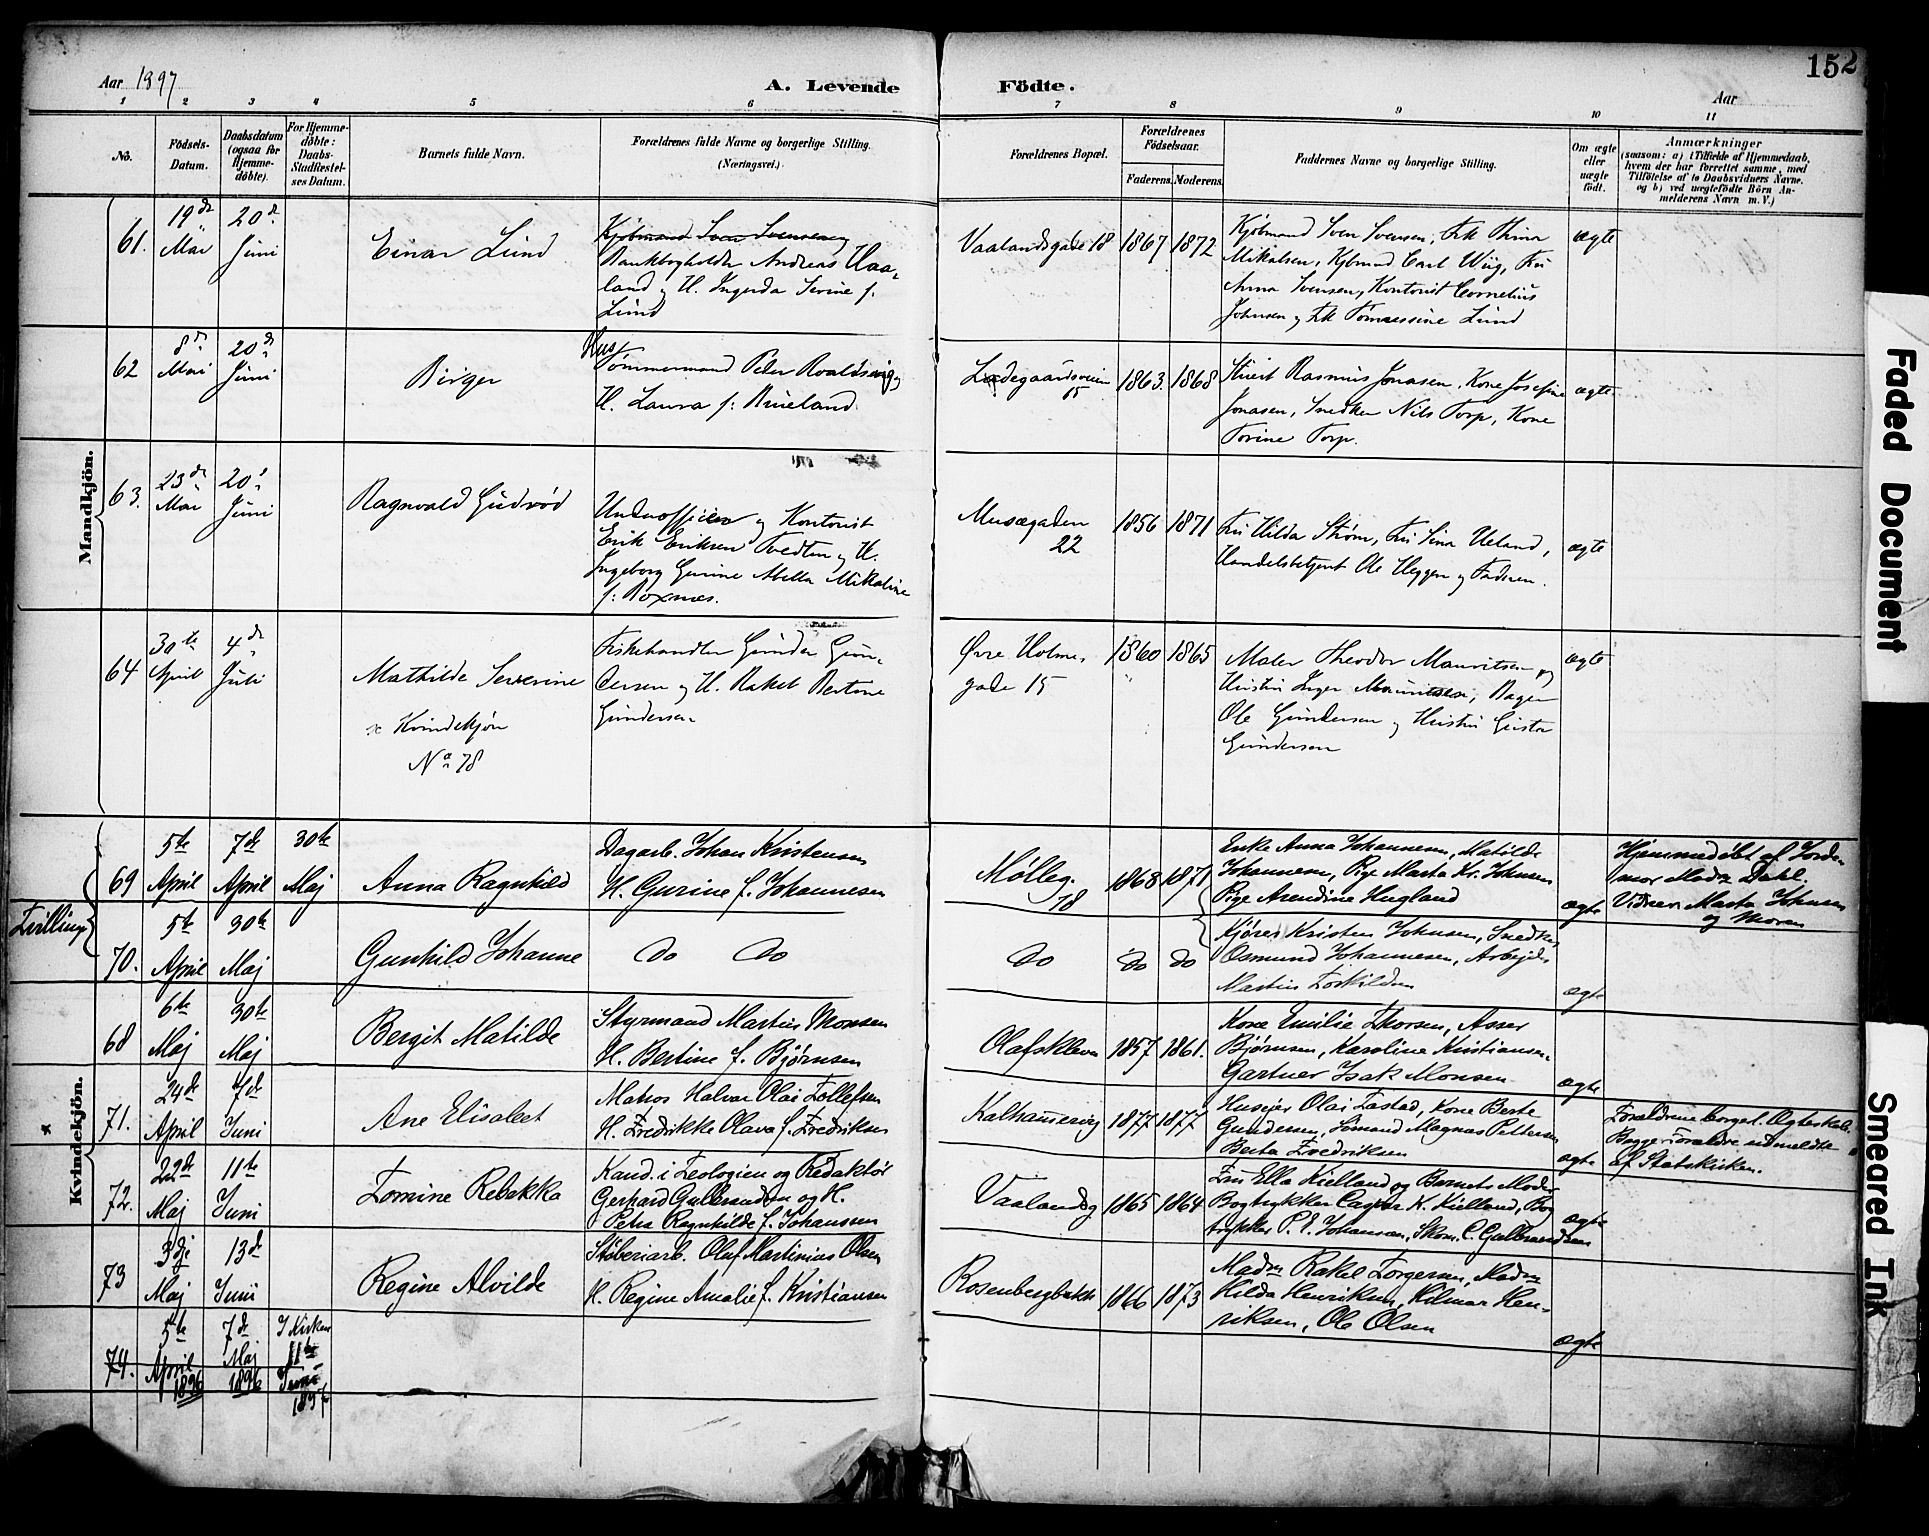 Aar 1897
A. Levende Födte.
Aar
152
1 2 3 4 5 6 7 8 9 10 11
No.
Födsels-
Datum.
Daabsdatum
(ogsaa for
Hjemme-
döbte).
For Hjemme-
döbte:
Daabs-
Stadfæstel-
ses Datum.
Barnets fulde Navn.
Forældrenes fulde Navne og borgerlige Stilling.
(Næringsvei.)
Forældrenes Bopæl.
Forældrenes
Födselsaar.
Faderens. Moderens.
Faddernes Navne og borgerlige Stilling.
Om ægte
eller
uægte
födt.
Anmærkninger
(saasom: a) i Tilfælde af Hjemmedaab,
hvem der har forrettet samme, med
Tilföielse af to Daabsvidners Navne,
og b) ved uægtefödte Börn An-
melderens Navn m. V.)
Mandkjön.
61.
19de
Mai
20de
Juni
Einar Lund
Kjøbmand Sven Svensen og
Bankbogholder Andreas Haa-
land og H. Ingerda Serine f.
Lund
Vaalandsgade 18
1867 1872
Kjøbmand Sven Svensen, Frk Thina
Mikalsen, Kjbmnd Carl Wiig, Fru
Anna Svensen, Kontorist Cornelius
Johnsen og Frk Tomassine Lund
ægte
62
8de
Mai
20de
Juni
Birger
Hus
Tømmermand Peder Roaldsvig og
H. Laura f. Bueland
Ladegaardsveien
15
1863. 1868
Stuert Rasmus Jonasen, Kone Josefine
Jonasen, Snedker Nils Torp, Kone
Torine Torp.
ægte
63.
23de
Mai
20de
Juni
Ragnvald Gudrød
Underofficier og Kontorist
Erik Eriksen Tvedten og H.
Ingeborg Gurine Abella Mikaline
f. Roxnæs.
Musægaden
22
1856 1871
Fru Hilda Strøm, Fru Sina Ueland,
Handelsbetjent Ole Heggen og Faderen.
ægte
64
30te
April
4de
Juli
Mathilde Severine
x Kvindekjøn
No 78
Fiskehandler Gunder Gun-
dersen og H. Rakel Bertine
Gundersen
Øvre Holme-
gade 15
1860 1865
Maler Theodor Mauritsen og
Hustru Inger Mauritsen, Bager
Ole Gundersen og Hustru Gusta
Gundersen
ægte
Tvillinger
69
5te
April
7de
April
30te
Maj
Anna Ragnhild
Dagarb. Johan Kristensen
H. Gurine f. Johannesen
Mølleg.
18
1868 1871
Enke Anna Johannesen, Matilde
Johannesen, Pige Marta Kr. Johnsen
Pige Arendine Hugland
ægte
Hjemmedøbt af Jorde-
mor Madm Dahl.
Vidner: Marta Johnsen
og Moren
70.
5te
April
30te
Maj
Gunhild Johanne
Do Do
Do
Do Do
Kjører Kristen Johnsen, Snedker
Osmund Johannesen, Arbejds
Martin Torkildsen
ægte
Kvindekjön.
68
6te
Maj
30te
Maj
Bergit Matilde
Styrmand Martin Monsen
H. Bertine f. Bjørnsen
Olafskleven
1857 1861.
Kone Emilie Thorsen, Asser
Bjørnsen, Karoline Kristiansen
Gartner Isak Monsen
ægte
x
71.
24de
April
7de
Juni
Ane Elisabet
Matros Halvar Olai Tollefsen
H. Fredrikke Olava f. Fredriksen
Kalhammervig
1877 1877
Husejer Olai Tastad, Kone Berte
Gundersen, Sømand Magnas Pettersen
Berta Fredriksen
ægte
Forældrene borgerl. Ægteskab.
Begge Forældre udmeldte
af Statskirken.
72.
22de
Maj
11te
Juni
Tomine Rebekka
Kand. i Teologien og Redaktør
Gerhard Gulbrandsen og H.
Petra Ragnhilde f. Johanssen
Vaalandsg
1865 1864
Fru Ella Kielland og Barnets Moder
Bogtrykker Casper K. Kielland, Bog
trykker P. E. Johansen, Skom. C. Gulbrandsen
ægte
73
3dje
Maj
13de
Juni
Regine Alvilde
Støberiarb. Oluf Martinius Olsen
H. Regine Amalie f. Kristiansen
Rosenbergbakk
1866 1873
Madm Rakel Torgersen, Madm
Hilda Henriksen, Hilmar Hen-
riksen, Ole Olsen
ægte
74.
5te
April
1896
7de
Maj
1896
I Kirken
11te
Juni
1897
Faded Document
Smeared Ink